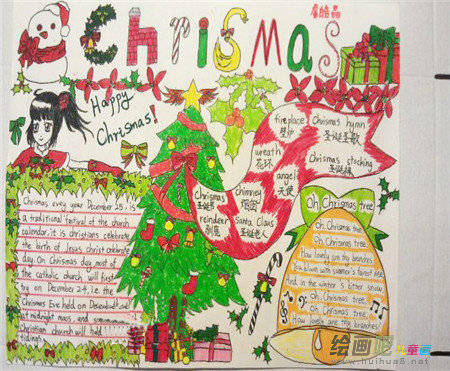 Chrismas
Happy
Chrismas!
fireplace
壁炉
Chrismas hymn
圣诞圣歌
wreath
花环
angel
天使
Chrismas stocking
圣诞袜
Chrismas
圣诞
chimney
烟囱
reindeer
Santa Claus
圣诞老人
Chrismas evey year December 25. is
a traditional festival of the church
calendar. it is christians celebrate
the birth of Jesus christ
day. On Chrismas day most of
the catholic church will first
on December 24, i.e. the
Chrismas Eve held on
at midnight mass, and
Christian church will held
tidings.
Oh, Chrismas tree
Oh, Chrismas tree
Oh, Chrismas tree,
How lovely are thy branches
You bloom with summer's forest
And in the winter's bitter snow
Oh, Chrismas tree,
Oh, Chrismas tree,
How lovely are thy branches!
绘画吧
儿童画
www.huihua8.net